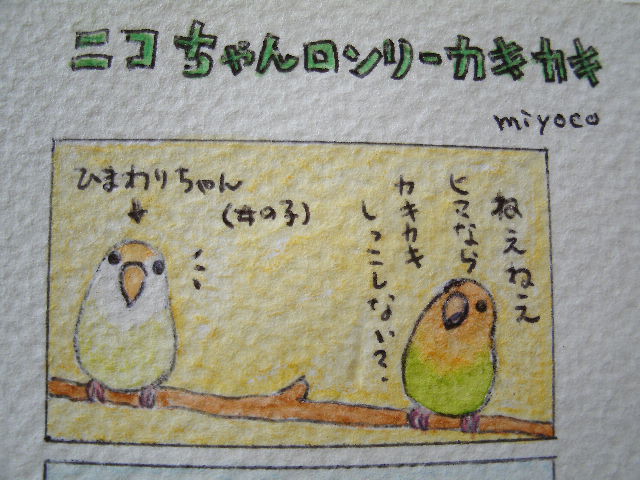 ニコちゃんロンリーカキカキ
miyoco
ねえねえ
ヒマなら
カキカキ
しっこしない？
ひまわりちゃん
(女の子)